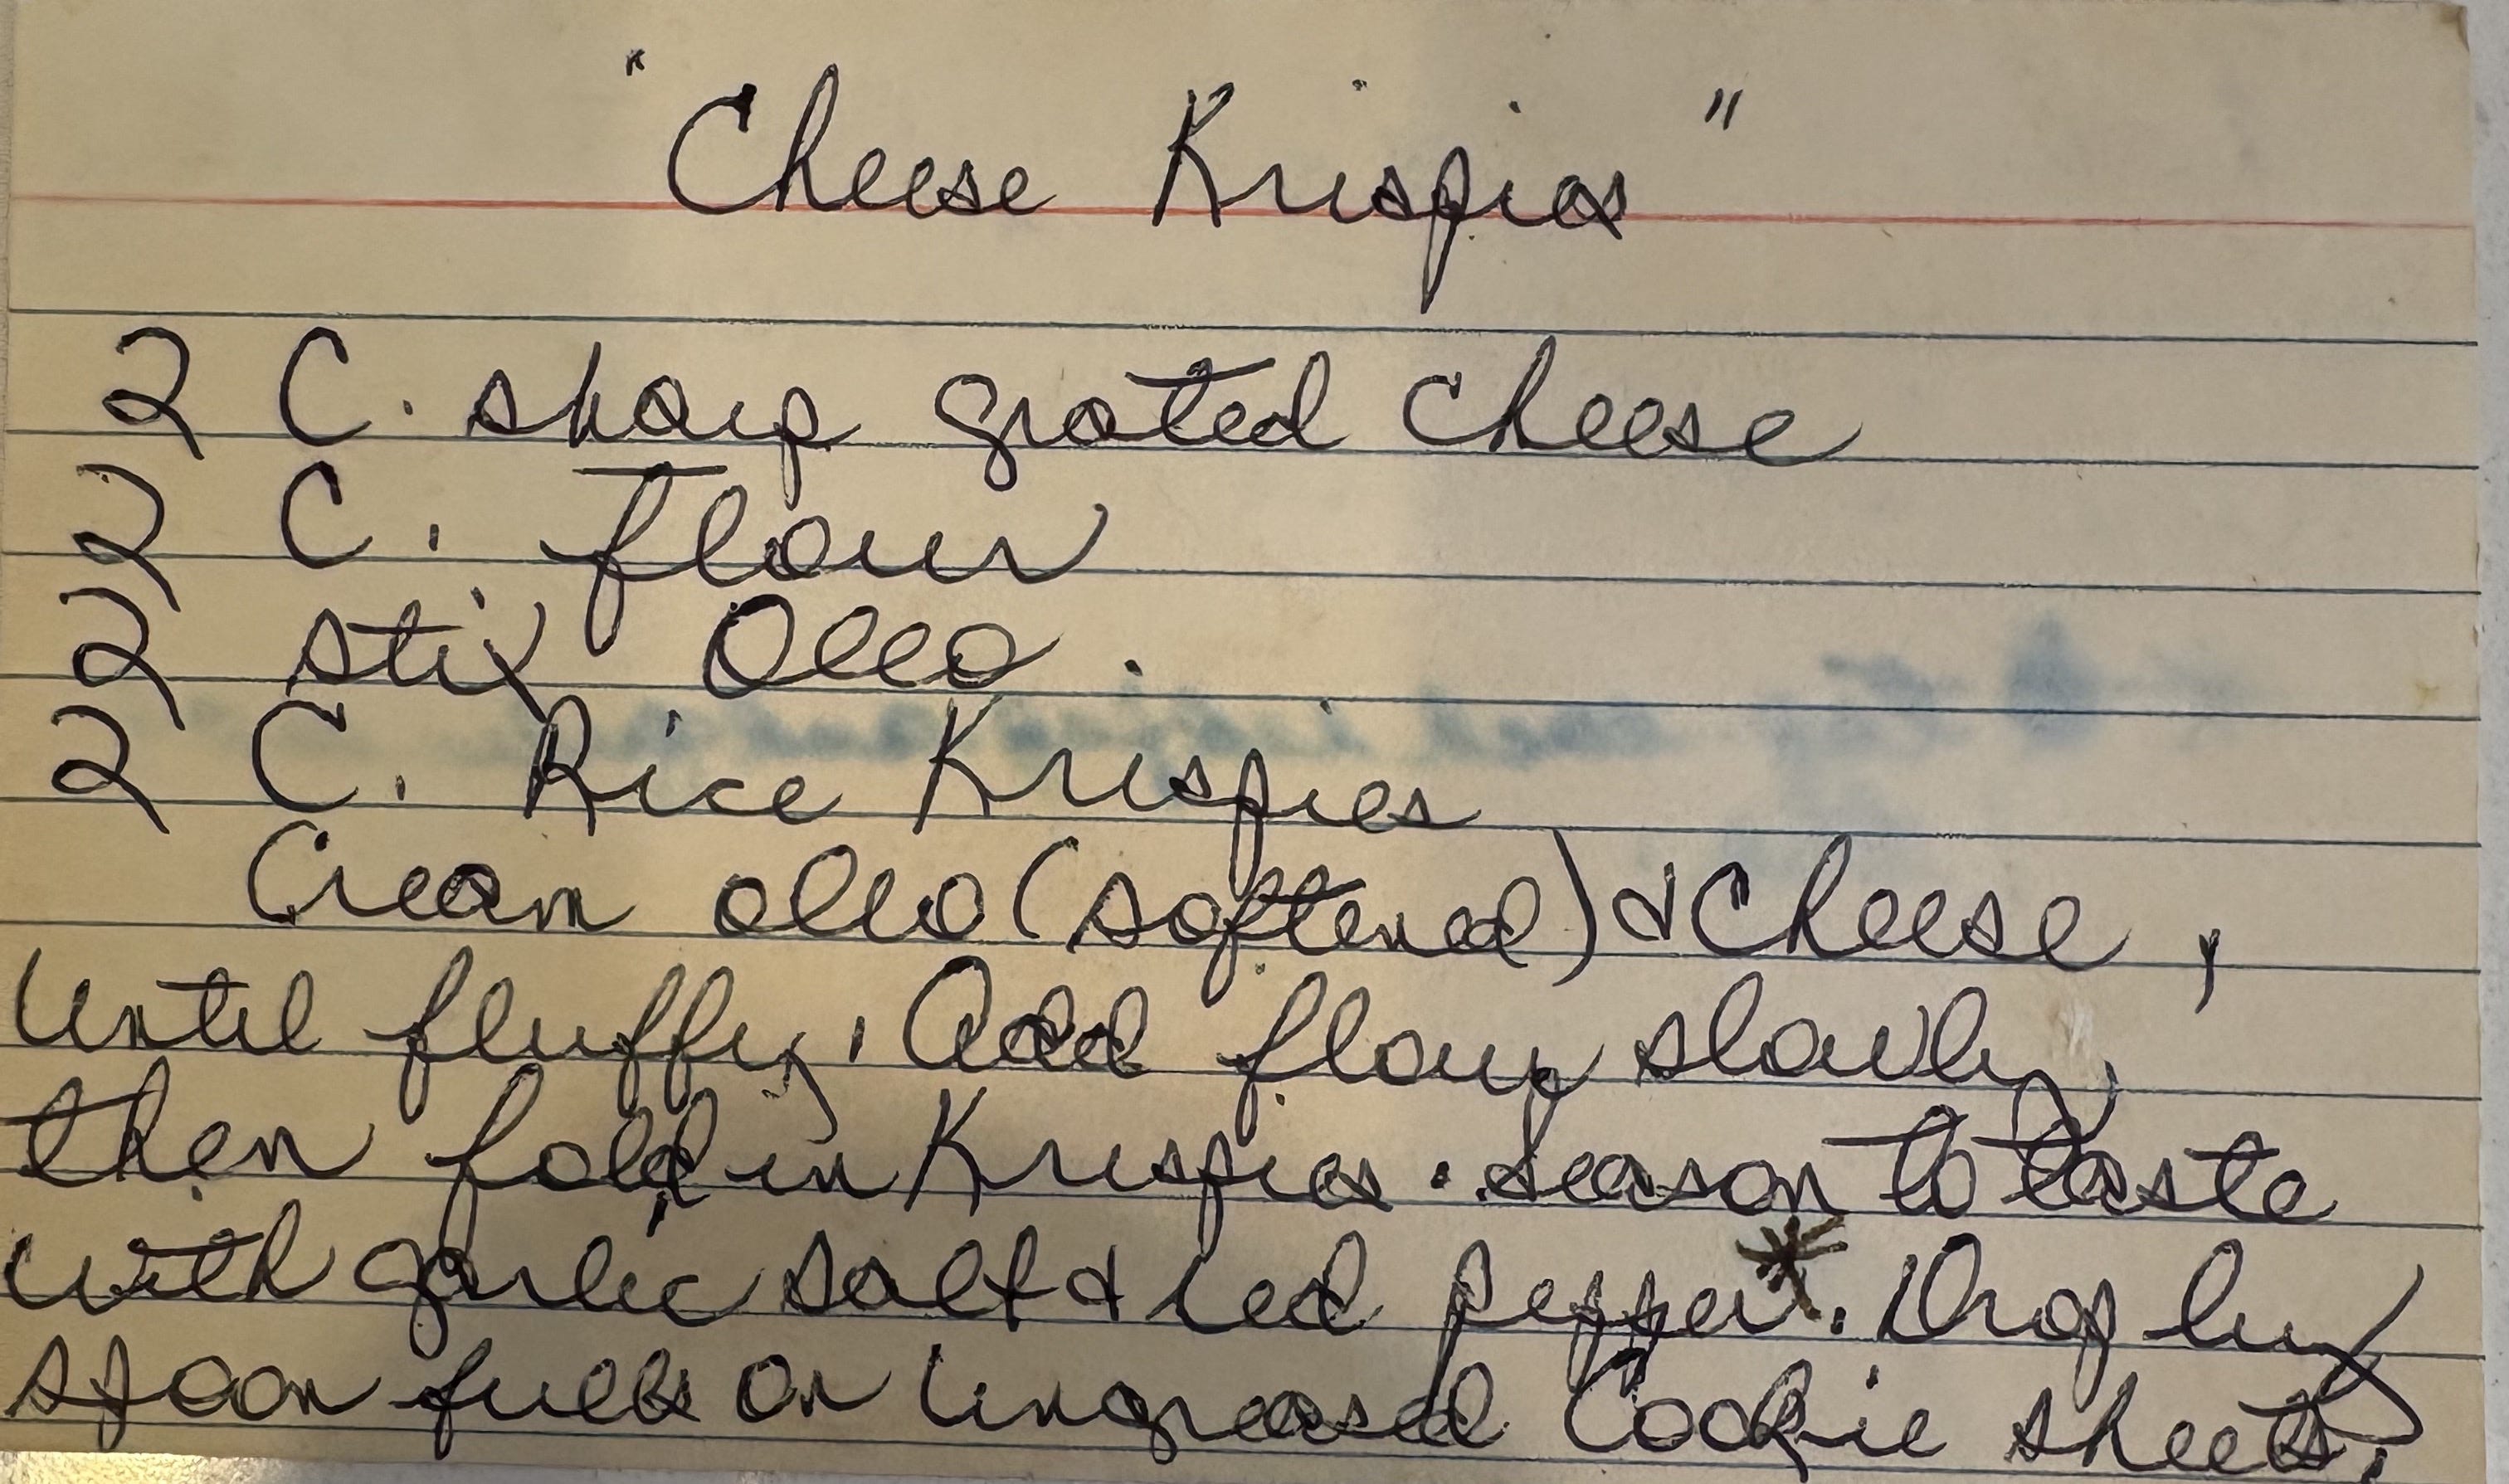 "Cheese Krispies"
2 C. sharp grated cheese
2 C. flour
2 stix Oleo.
2 C. Rice Krispies
Cream oleo (softened) & Cheese,
until fluffy. Add flour slowly,
then fold in Krispies. Season to taste
with garlic salt & red pepper*. Drop by
spoon fulls on ungreased Cookie sheets.